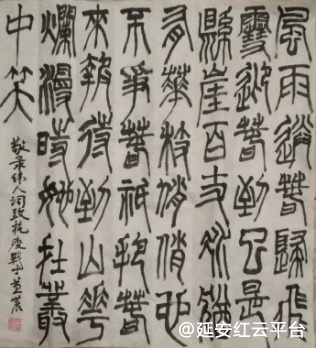 風雨送春歸飛
雪迎春到已是
懸崖百丈冰猶
有華枝俏俏也
不爭春祇把春
來報待到山華
爛漫時她在叢
中笑
敬录伟人词
@延安红云平台